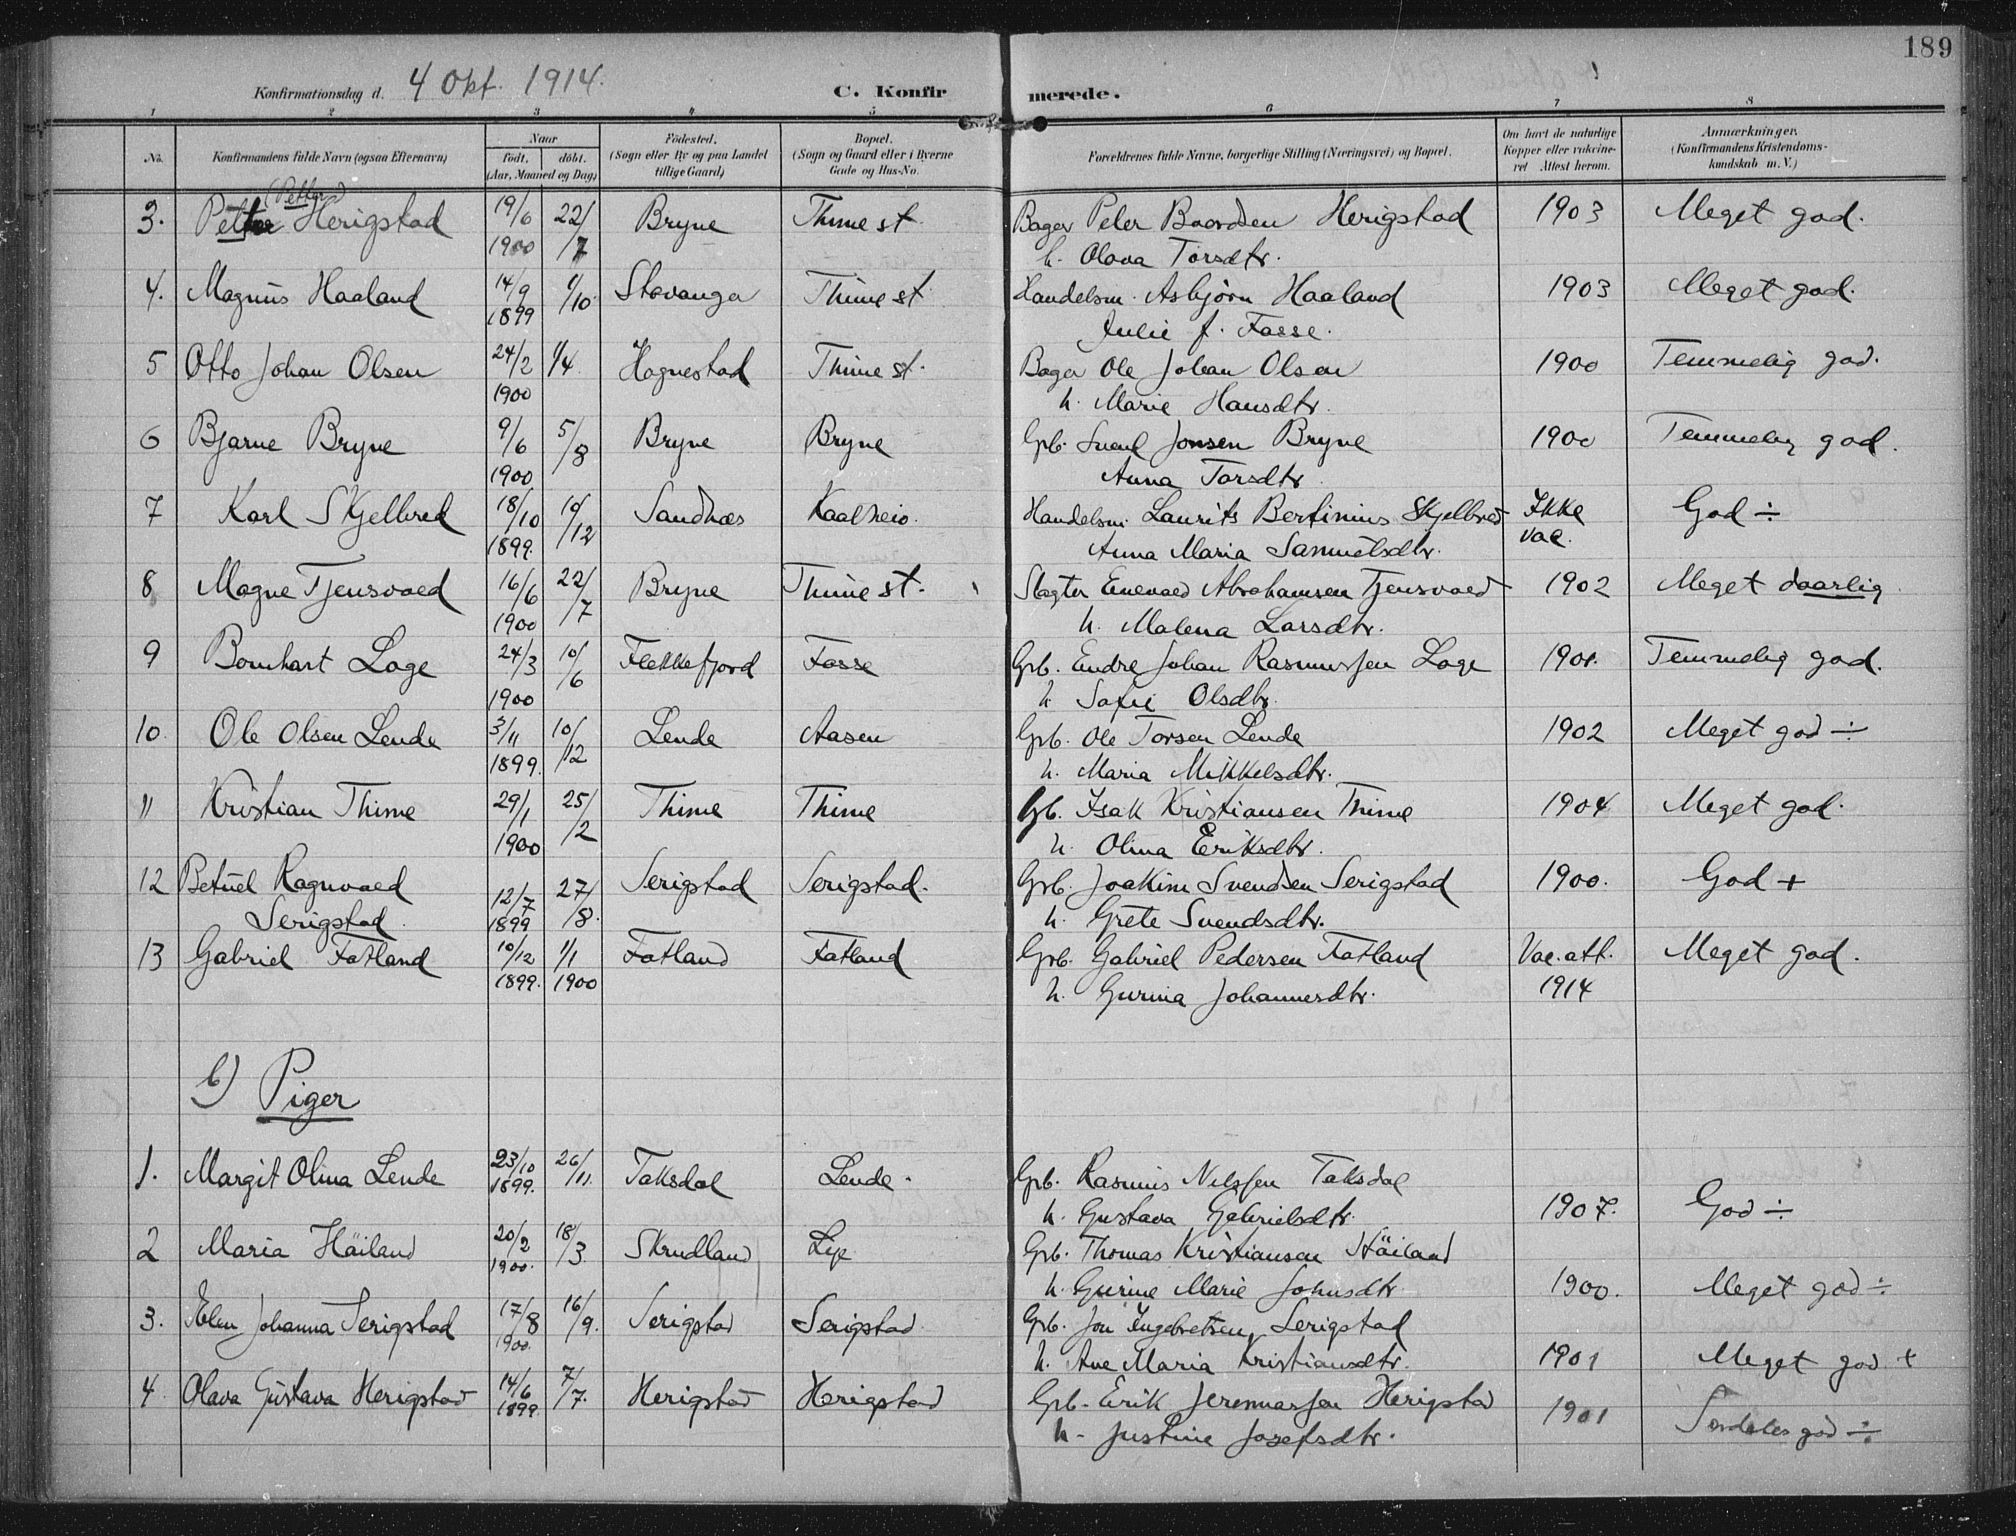 189
Konfirmationsdag d. 4 Okt. 1914.
C. Konfirmerede.
1 2 3 4 5 6 7 8
No. Konfirmandens fulde Navn (ogsaa Efternavn) Naar født, døbt. (Aar, Maaned og Dag) Fødested. (Sogn eller By og paa Landet tillige Gaard) Bopæl. (Sogn og Gaard eller i Byerne Gade og Hus-No. Forældrenes fulde Navne, borgerlige Stilling (Næringsvei) og Bopæl. Om havt de naturlige Kopper eller vakcineret Attest herom. Anmærkninger. (Konfirmandens Kristendomskundskab m. V.)
(Petter)
3. Petter Herigstad 19/6 22/7 Bryne Thime st. Bager Peter Baardsen Herigstad 1903 Meget god.
1900 h. Olava Torsdtr.
4. Magnus Haaland 14/9 1/10 Stavanger Thime st. Handelsm. Asbjørn Haaland 1903 Meget god.
1899 Julie f. Fosse.
5 Otto Johan Olsen 24/2 1/4 Hognestad Thime st. Bager Ole Johan Olsen 1900 Temmelig god.
1900 h. Marie Hansdtr.
6 Bjarne Bryne 9/6 5/8 Bryne Bryne Gpb. Svend Jonsen Bryne 1900 Temmelig god.
1900 Anna Torsdtr
7 Karl Skjelbred 18/10 10/12 Sandnæs Kaalheio. Handelsm. Laurits Bertinius Skjelbred Ikke God ÷
1899. Anna Maria Samuelsdtr. vac.
8 Magne Tjensvold 16/6 22/7 Bryne Thime st. Slagter Enevald Abrahamsen Tjensvold 1902 Meget daarlig
1900 h. Malena Larsdtr.
9 Bernhart Loge 24/3 10/6 Flekkefjord Fosse Gpb. Endre Johan Rasmussen Loge 1901. Temmelig god.
1900 h. Sofie Olsdtr.
10. Ole Olsen Lende 3/11 10/12 Lende Aasen Gpb. Ole Torsen Lende 1902 Meget god ÷
1899. h. Maria Mikkelsdtr.
11 Kristian Thime 29/1 25/2 Thime Thime Gpb. Isak Kristiansen Thime 1904 Meget god.
1900 h. Olina Eriksdtr.
12 Betuel Ragnvald 12/7 27/8. Serigstad Serigstad. Gpb. Joakim Svendsen Serigstad 1900. God +
Serigstad. 1899 h. Grete Svendsdtr.
13 Gabriel Fotland 10/12 1/1 Fotland Fotland Gpb. Gabriel Pedersen Fotland Vac. att. Meget god.
1899. 1900 h. Gurina Johannesdtr. 1914
b) Piger
1. Margit Olina Lende 23/10 26/11. Taksdal Lende. Gpb. Rasmus Nilssen Taksdal
1899. h. Gustava Gabrielsdtr. 1907. God ÷
2 Maria Häiland 20/2 18/3. Skrudland Lye Gpb. Thomas Kristiansen Häiland
1900. h. Gurine Marie Johnsdtr. 1900. Meget god ÷
3. Elen Johanna Serigstad 17/8 16/9. Serigstad Serigstad Gpb. Jon Ingebretsen Serigstad
1900. h. Ane Maria Kristiansdtr. 1901 Meget god +
4. Olava Gustava Herigstad 14/6 7/7. Herigstad Herigstad Gpb. Erik Jeremiassen Herigstad
1899. h. Justine Josefsdtr. 1901 Særdeles god ÷